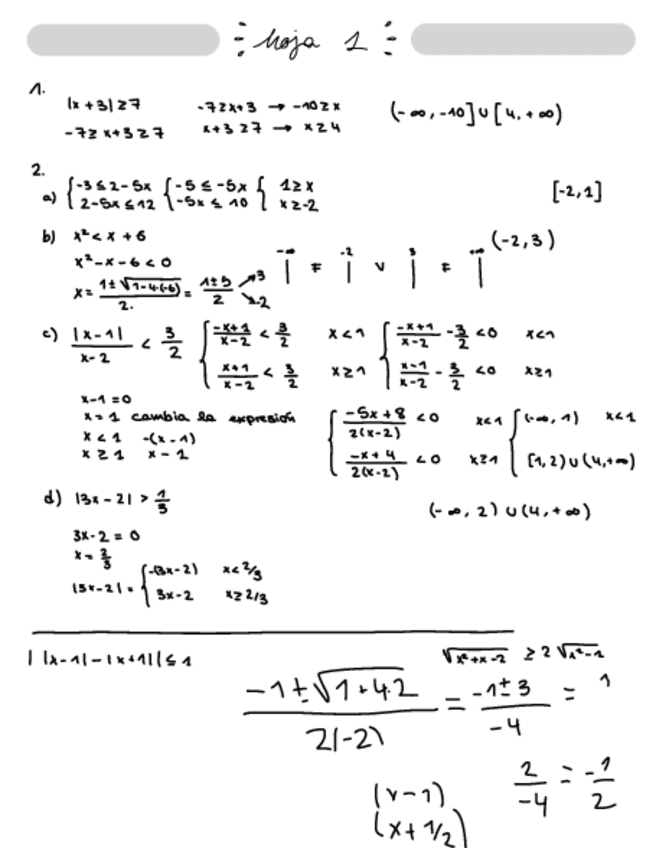 hoja 1
1.
|x+3| ≥ 7   -7 ≥ x+3 → -10 ≥ x   (-∞, -10] ∪ [4, +∞)
-7 ≥ x+3 ≥ 7   x+3 ≥ 7 → x ≥ 4
2.
a) { -3 ≤ 2-5x { -5 ≤ -5x { 1 ≥ x   [-2, 1]
2-5x ≤ 12   -5x ≤ 10   x ≥ -2
b) x² < x + 6   (-2, 3)
x² - x - 6 < 0   -∞   -2   3   +∞
x = 1±√1-4·(-6) / 2· = 1±5 / 2   3   -2   F   V   F
c) |x-1| / x-2 < 3/2 { -x+1 / x-2 < 3/2   x < 1 { -x+1 / x-2 - 3/2 < 0   x < 1
x+1 / x-2 < 3/2   x ≥ 1   x-1 / x-2 - 3/2 < 0   x ≥ 1
x-1 = 0
x = 1 cambia la expresión { -5x+8 / 2(x-2) < 0   x < 1 { (-∞, 1)   x < 1
x < 1   -(x-1)
x ≥ 1   x-1   -x+4 / 2(x-2) < 0   x ≥ 1   [1, 2) ∪ (4, +∞)
d) |3x-2| > 1/3   (-∞, 2) ∪ (4, +∞)
3x-2 = 0
x = 2/3
|3x-2| = { -(3x-2)   x < 2/3
3x-2   x ≥ 2/3
||x-1| - |x+1|| ≤ 1   √x²+x-2 ≥ 2√x²-1
-1±√1+4·2 / 2(-2) = -1±3 / -4 = 1
2/-4 = -1/2
(x-1)
(x+1/2)